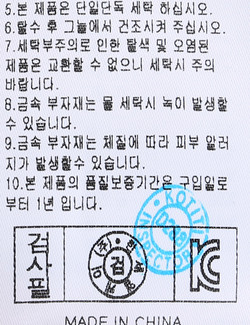 5.본 제품은 단일단독 세탁 하십시오.
6.탈수 후 그늘에서 건조시켜 주십시오.
7.세탁부주의로 인한 탈색 및 오염된
제품은 교환할 수 없으니 세탁시 주의
바랍니다.
8.금속 부자재는 물 세탁시 녹이 발생할
수 있습니다.
9.금속 부자재는 체질에 따라 피부 알러
지가 발생할수 있습니다.
10.본 제품의 품질보증기간은 구입일로
부터 1년 입니다.
KOTITI
INSPECTOR
검사필
검
KC
MADE IN CHINA